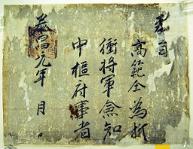 教旨
高範全為折
衝將軍僉知
中樞府事者
元年 月 日